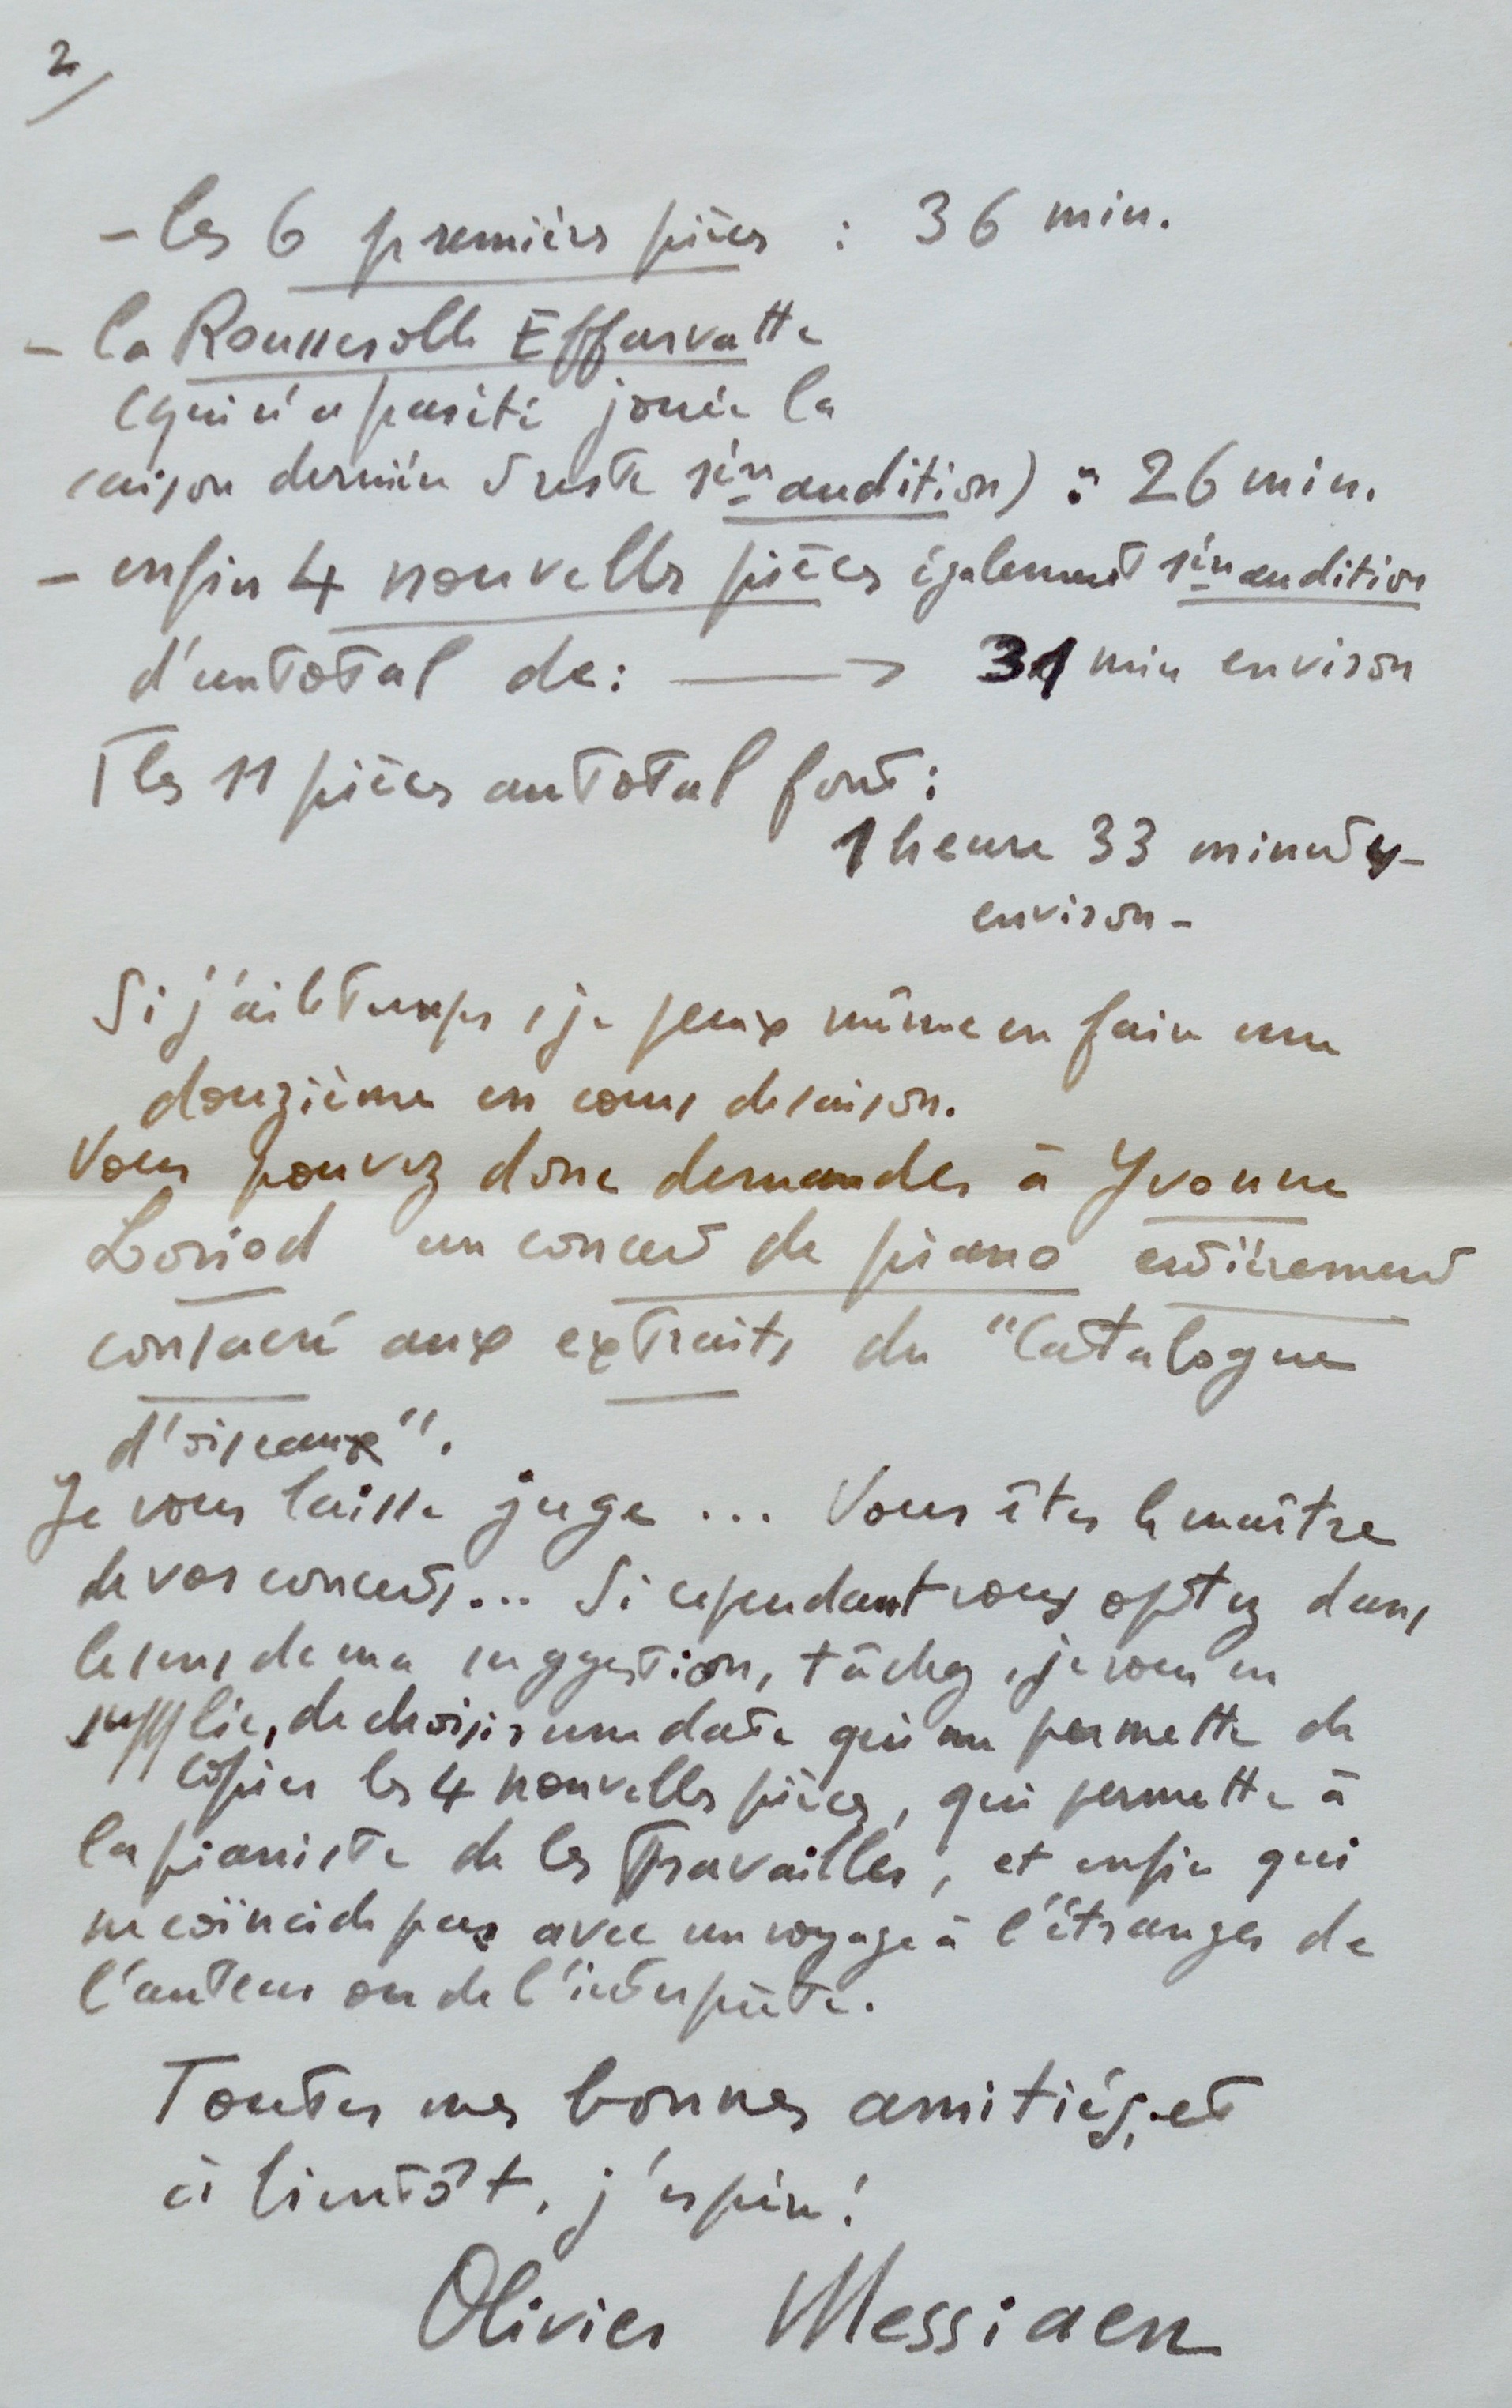 2/
- les 6 premières pièces : 36 min.
- la Rousserolle Effarvatte
(qui n'a pas été jouée la
saison dernière et reste 1ère audition) : 26 min.
- enfin 4 nouvelles pièces également 1ère audition
d'un total de : → 31 min environ
les 11 pièces au total font :
1 heure 33 minutes
environ -
Si j'ai le temps, je peux même en faire une
douzième en cours de saison.
Vous pouvez donc demander à Yvonne
Loriod un concert de piano entièrement
consacré aux extraits du "Catalogue
d'oiseaux".
Je vous laisse juge ... Vous êtes le maître
de vos concerts... Si cependant vous optez dans
le sens de ma suggestion, tâchez, je vous en
supplie, de choisir une date qui me permette de
copier les 4 nouvelles pièces, qui permette à
la pianiste de les travailler, et enfin qui
ne coïncide pas avec un voyage à l'étranger de
l'auteur ou de l'interprète.
Toutes mes bonnes amitiés, et
à bientôt, j'espère !
Olivier Messiaen